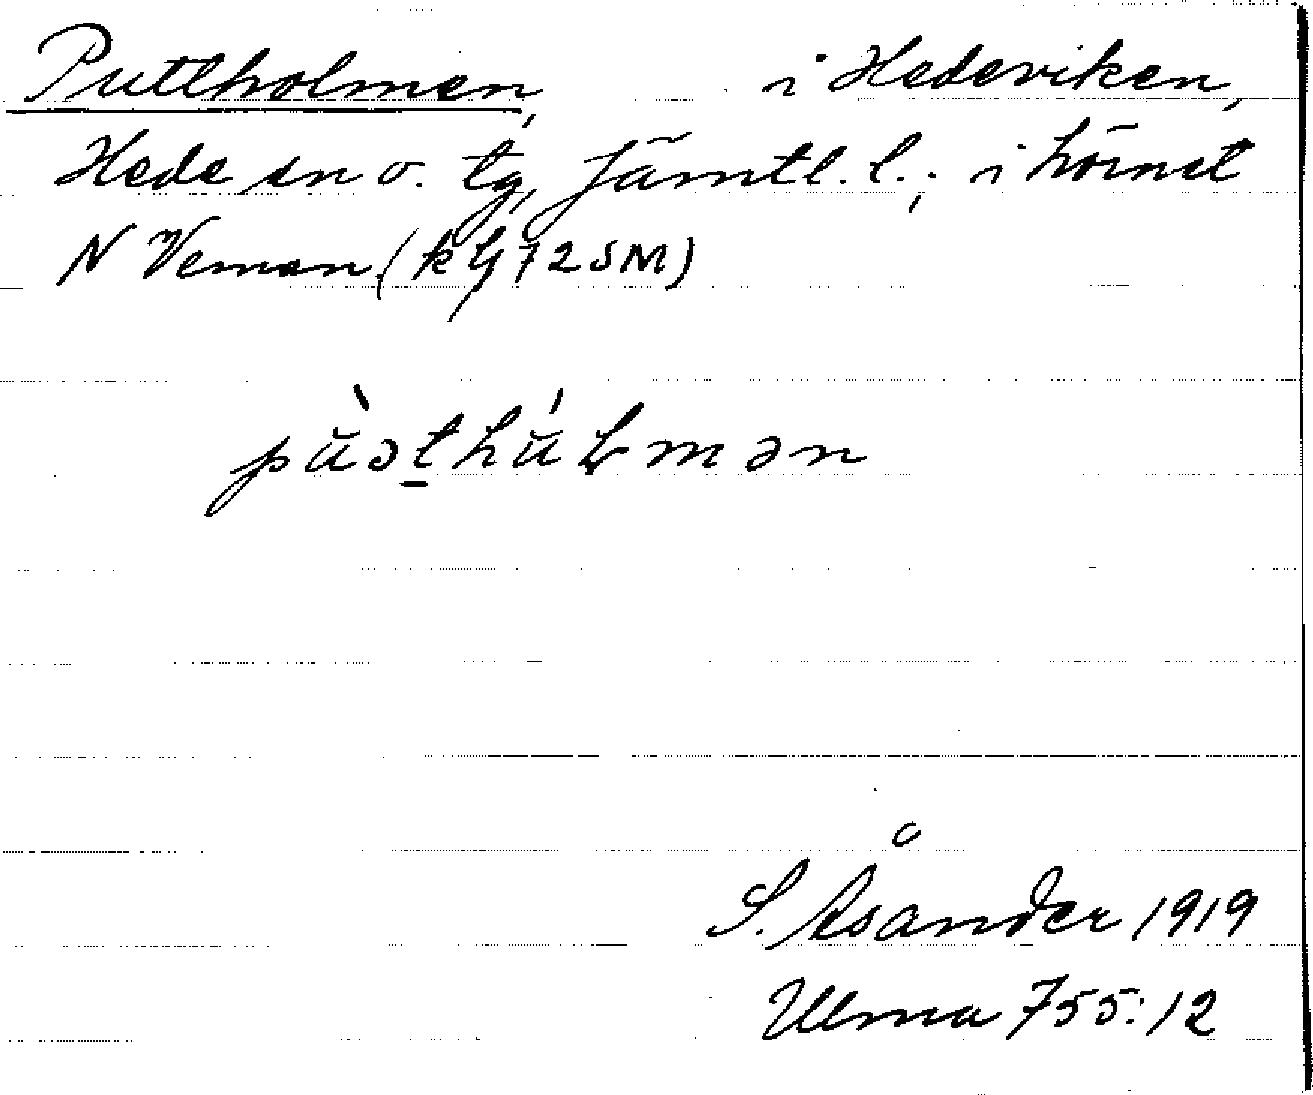 Puttholmen, i Hedeviken,
Hede sn o. tg, Jämtl. l.; i hörnet
N Veman (kbl 72 SM)
S. Åsander 1919
Ulma 755:12